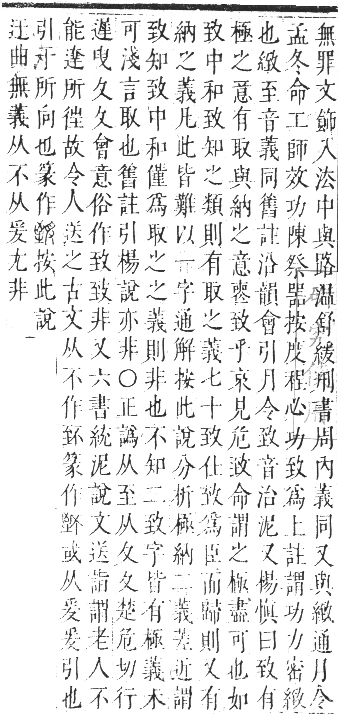 無罪文飾入法中與路温舒緩刑書周內義同又與緻通月令
孟冬命工師效功陳祭器按度程必功致爲上註謂功力密緻
也緻至音義同舊註沿韻會引月令致音治泥又楊愼曰致有
極之意有取與納之意喪致乎哀見危致命謂之極盡可也如
致中和致知之類則有取之義七十致仕致爲臣而歸則又有
納之義凡此皆難以一字通解按此說分析極納二義差近謂
致知致中和僅爲取之之義則非也不知二致字皆有極義未
可淺言取也舊註引楊說亦非○正譌从至从夂夂楚危切行
遲曳夂夂會意俗作致致非又六書統泥說文送詣謂老人不
能達所徃故令人送之古文从不作𦤶篆作𦤺或从爰爰引也
引于所向也篆作𦤺按此說
迂曲無義从不从爰尤非